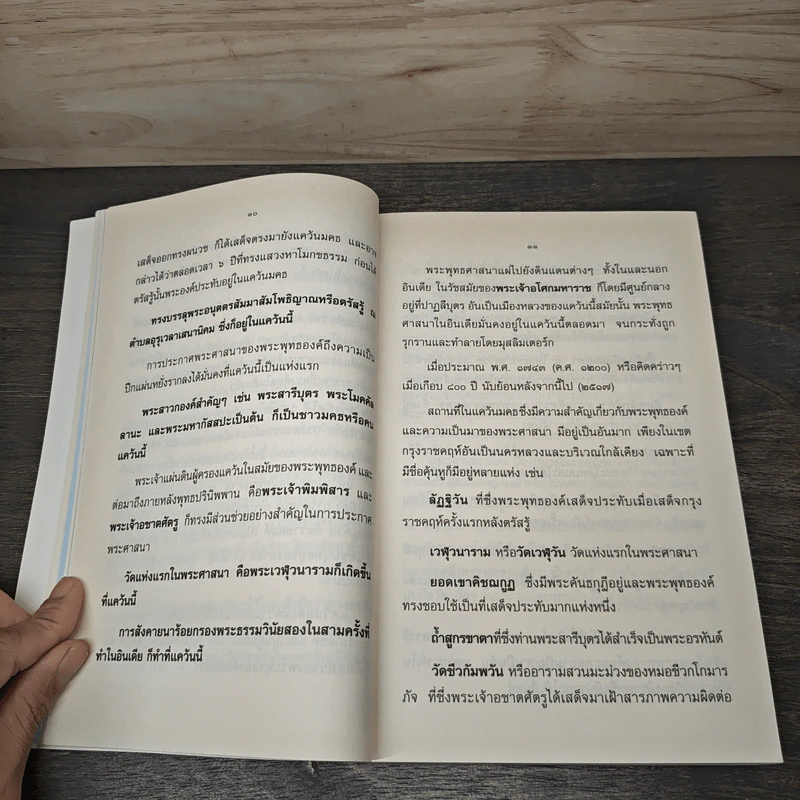 ๑๐
เสด็จออกทรงผนวช ก็ได้เสด็จตรงมายังแคว้นมคธ และอาจ
กล่าวได้ว่าตลอดเวลา ๖ ปีที่ทรงแสวงหาโมกขธรรม ก่อนได้
ตรัสรู้นั้นพระองค์ประทับอยู่ในแคว้นมคธ
ทรงบรรลุพระอนุตตรสัมมาสัมโพธิญาณหรือตรัสรู้ ณ
ตำบลอุรุเวลาเสนานิคม ซึ่งก็อยู่ในแคว้นนี้
การประกาศพระศาสนาของพระพุทธองค์ถึงความเป็น
ปึกแผ่นหยั่งรากลงได้มั่นคงที่แคว้นนี้เป็นแห่งแรก
พระสาวกองค์สำคัญๆ เช่น พระสารีบุตร พระโมคคัล
ลานะ และพระมหากัสสปะเป็นต้น ก็เป็นชาวมคธหรือคน
แคว้นนี้
พระเจ้าแผ่นดินผู้ครองแคว้นในสมัยของพระพุทธองค์ และ
ต่อมาถึงภายหลังพุทธปรินิพพาน คือพระเจ้าพิมพิสาร และ
พระเจ้าอชาตศัตรู ก็ทรงมีส่วนช่วยอย่างสำคัญในการประกาศ
พระศาสนา
วัดแห่งแรกในพระศาสนา คือพระเวฬุวนารามก็เกิดขึ้น
ที่แคว้นนี้
การสังคายนาร้อยกรองพระธรรมวินัยสองในสามครั้งที่
ทำในอินเดีย ก็ทำที่แคว้นนี้
๑๑
พระพุทธศาสนาแผ่ไปยังดินแดนต่างๆ ทั้งในและนอก
อินเดีย ในรัชสมัยของพระเจ้าอโศกมหาราช ก็โดยมีศูนย์กลาง
อยู่ที่ปาฏลีบุตร อันเป็นเมืองหลวงของแคว้นนี้สมัยนั้น พระพุทธ
ศาสนาในอินเดียมั่นคงอยู่ในแคว้นนี้ตลอดมา จนกระทั่งถูก
รุกรานและทำลายโดยมุสลิมเตอร์ก
เมื่อประมาณ พ.ศ. ๑๗๔๓ (ค.ศ. ๑๒๐๐) หรือคิดคร่าวๆ
เมื่อเกือบ ๘๐๐ ปี นับย้อนหลังจากนี้ไป (๒๕๑๗)
สถานที่ในแคว้นมคธซึ่งมีความสำคัญเกี่ยวกับพระพุทธองค์
และความเป็นมาของพระศาสนา มีอยู่เป็นอันมาก เพียงในเขต
กรุงราชคฤห์อันเป็นนครหลวงและบริเวณใกล้เคียง เฉพาะที่
มีชื่อคุ้นหูก็มีอยู่หลายแห่ง เช่น
ลัฏฐิวัน ที่ซึ่งพระพุทธองค์เสด็จประทับเมื่อเสด็จกรุง
ราชคฤห์ครั้งแรกหลังตรัสรู้
เวฬุวนาราม หรือวัดเวฬุวัน วัดแห่งแรกในพระศาสนา
ยอดเขาคิชฌกูฏ ซึ่งมีพระคันธกุฎีอยู่และพระพุทธองค์
ทรงชอบใช้เป็นที่เสด็จประทับมากแห่งหนึ่ง
ถ้ำสูกรขาตาที่ซึ่งท่านพระสารีบุตรได้สำเร็จเป็นพระอรหันต์
วัดชีวกัมพวัน หรืออารามสวนมะม่วงของหมอชีวกโกมาร
ภัจ ที่ซึ่งพระเจ้าอชาตศัตรูได้เสด็จมาเฝ้าสารภาพความผิดต่อ